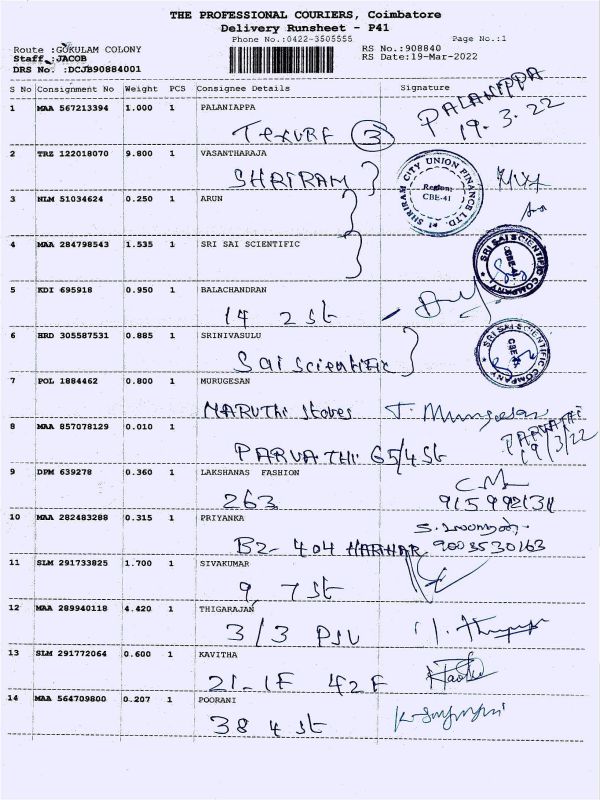 THE PROFESSIONAL COURIERS, Coimbatore
Delivery Runsheet - P41
Phone No.:0422-3505555
Page No.:1
Route :GOKULAM COLONY
RS No.:908840
Staff :JACOB
RS Date:19-Mar-2022
DRS No. :DCJB90884001
S No Consignment No Weight PCS Consignee Details Signature
1 MAA 567213394 1.000 1 PALANIAPPA
PALANIPPA
19.3.22
3
2 TRZ 122018070 9.800 1 VASANTHARAJA
SHRIRAM
SHRIRAM CITY UNION FINANCE LTD.
Region:
CBE-41
3 NLM 51034624 0.250 1 ARUN
4 MAA 284798543 1.535 1 SRI SAI SCIENTIFIC
SRI SAI SCIENTIFIC COMPANY
CBE-41
5 KDI 695918 0.950 1 BALACHANDRAN
14 2 St
6 HRD 305587531 0.885 1 SRINIVASULU
Sai Scientific
SRI SAI SCIENTIFIC COMPANY
CBE-41
7 POL 1884462 0.800 1 MURUGESAN
MARUTHI Stores T. Murugesan
8 MAA 857078129 0.010 1
PARVATHI 65/4 St
PARVATHI
19/3/22
9 DPM 639278 0.360 1 LAKSHANAS FASHION
263
10 MAA 282483288 0.315 1 PRIYANKA
B2- 404 HARIHAR 9003530163
11 SLM 291733825 1.700 1 SIVAKUMAR
9, 7 St
12 MAA 289940118 4.420 1 THIGARAJAN
3/3 PSU
13 SLM 291772064 0.600 1 KAVITHA
21-1F 42F
14 MAA 564709800 0.207 1 POORANI
38 4 St